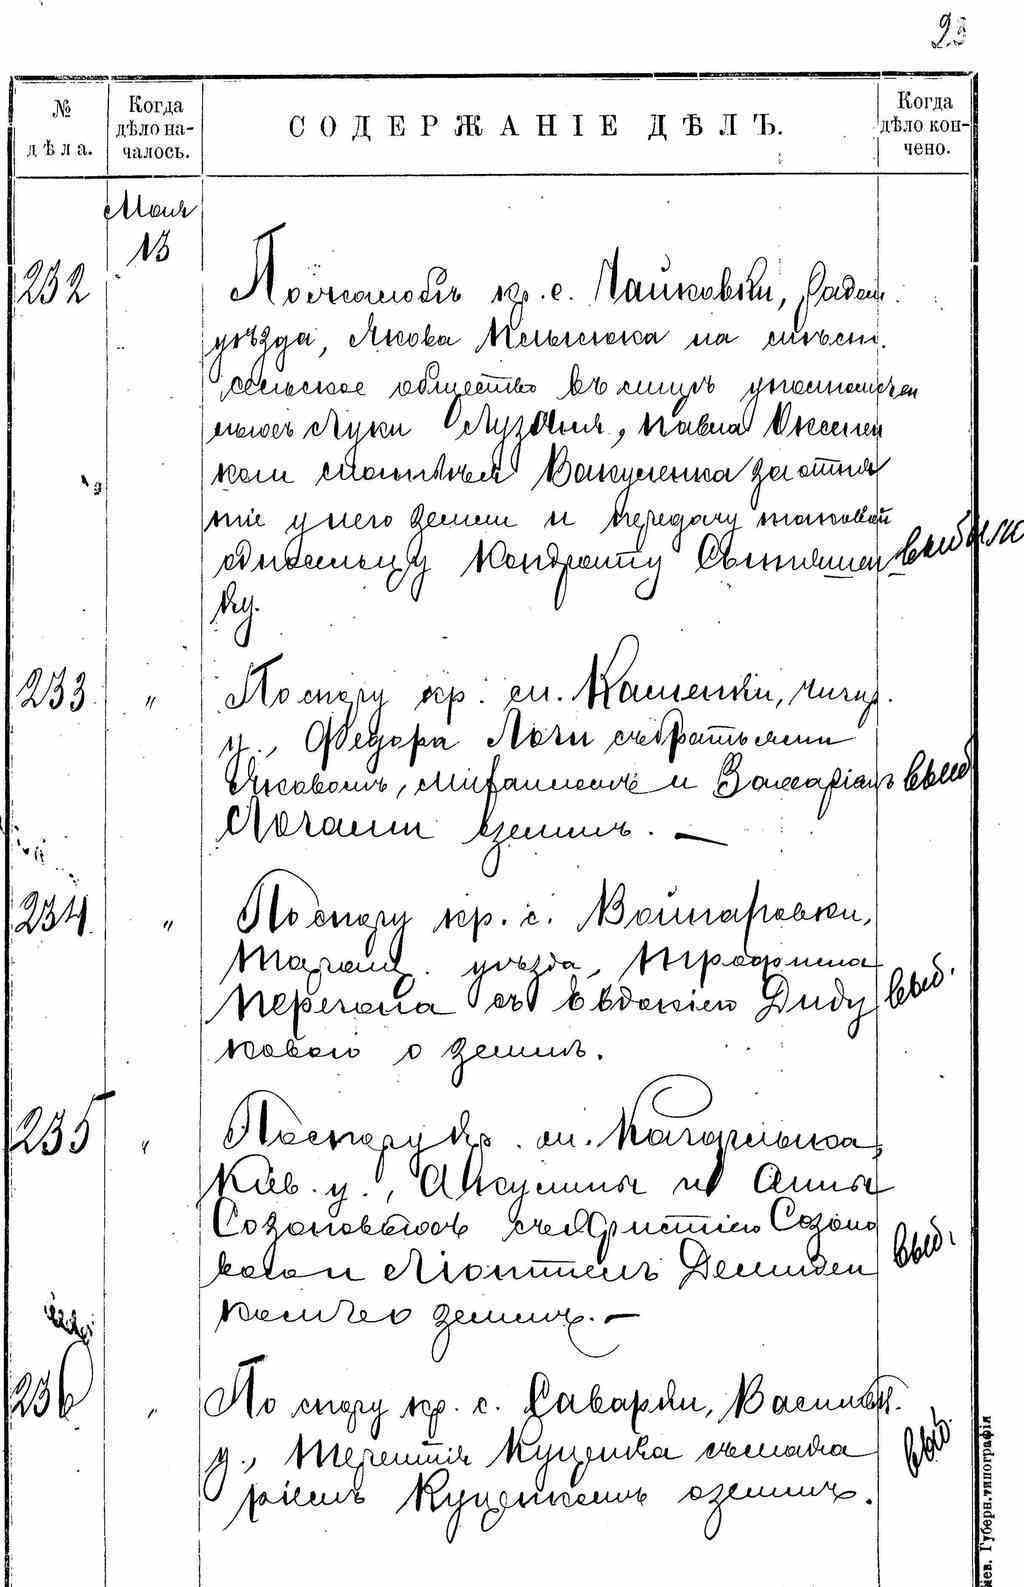 23
№ дѣла.
Когда дѣло началось.
СОДЕРЖАНІЕ ДѢЛЪ.
Когда дѣло кончено.
Мая
13
232
По жалобѣ кр. с. Чайковки, Радом.
уѣзда, Якова Мельника на мѣстн.
сельское общество въ лицѣ уполномочен
ныхъ Луки Лузана, Павла Оксенен
ко и Вакуленка за отня
тіе у него земли и передачу таковой
односельцу Кондрату
ку.
выбыло
233
"
По спору кр. м. Каменки, Чигир.
у., Федора Лочи съ братьями
Яковомъ, Михаиломъ и Захаріемъ
Лочами о земли. —
выб
234
"
По спору кр. с. Войтовки,
Таращ. уѣзда, Трофима
Перегона съ Евдокіею Диду
ковою о земли.
выб.
235
"
По спору кр. м. Кагарлыка,
Кіев. у., Акулины и Анны
Созоновыхъ съ Христиною Созоно
вою и Леонтіемъ Демиден
комъ о земли. —
выб.
236
"
По спору кр. с. Саварки, Васильк.
у., Терентія Куценка съ Мака
ріемъ Куценкомъ о земли.
выб.
Кіев. Губерн. типографія